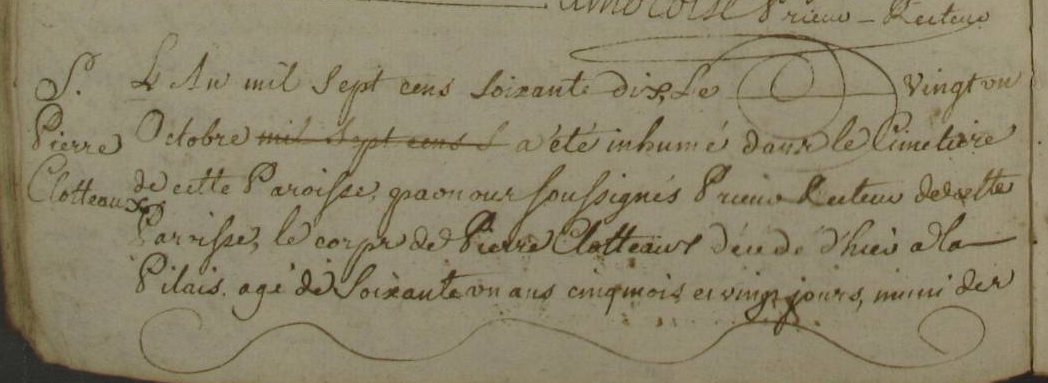 Prieur - Recteur
S. L'An mil Sept cens Soixante dix, Le vingt un
Pierre Octobre mil Sept cens S a été inhumé dans le Cimetiere
Clotteaux de cette Paroisse, par nous soussignés Prieur Recteur de cette
Paroisse, le corps de Pierre Clotteaux décédé d'hier a la
Pilais. agé de Soixante un ans cinq mois et vingt jours, muni des